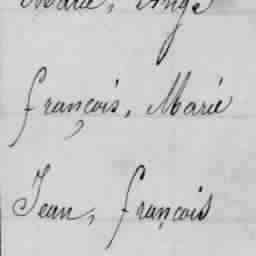 Marie, Ange
françois, Marie
Jean, françois